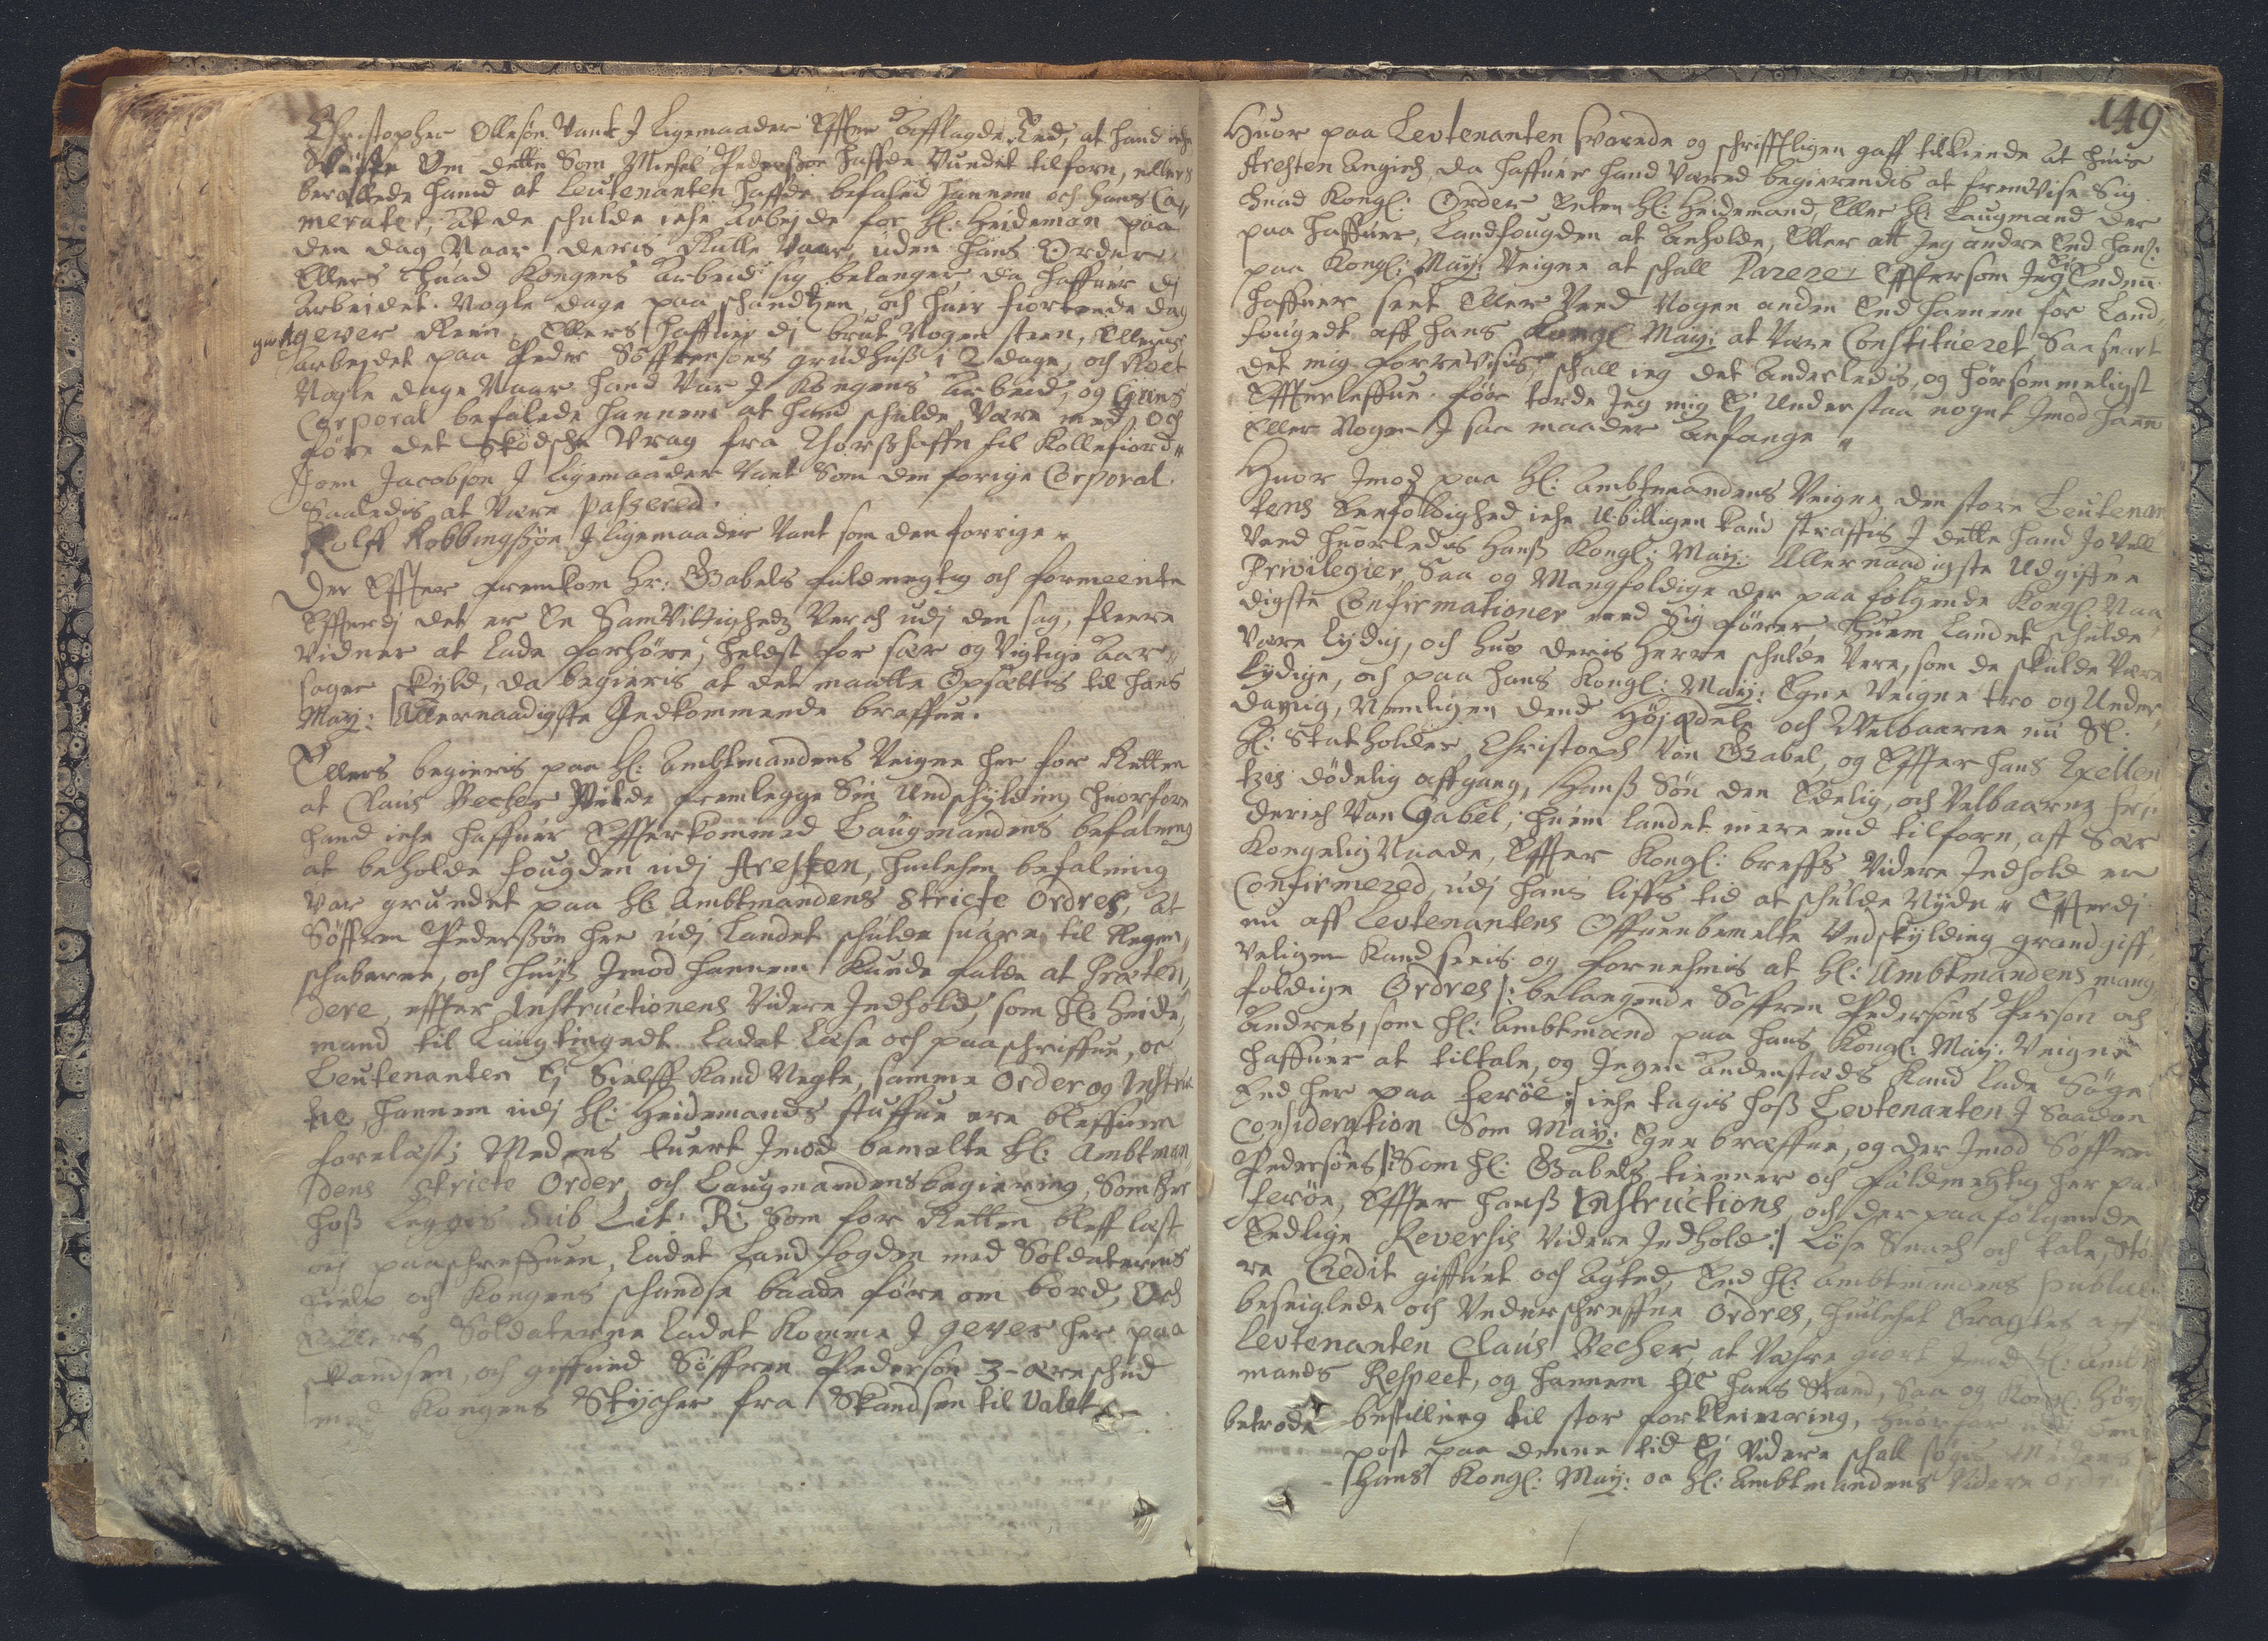 Christopher Ollesøn Vant I Ligemaader Effter Afflagde Eed, at hand iche
Viste Om dette Som Michel Pedersøn haffde Vundet tilforn, ellers
berettede hand at Leutenanten haffde befaled hannem och hans Ca„
merater, at de schulde iche Arbejde for Hl: Heideman paa
den dag Naar deris Rulle Vaar, uden hans Order,
Ellers huad Kongens Arbeid sig belanger, da haffuer di
Arbeidet Nogle dage paa schandtzen, och huer fiortende dag
gewer Reen. Ellers haffuer di brut Nogen steen, Ellers
arbejdet paa Peder Søffrensøns grudhuß i 2 dage, och Roet
Nogle dage Naar hand Var I Kongens Arbeid, og
Corporal befalede hannem at hand schulde Være med och
føre det Skodsche Vrag fra Thorßhaffn til Kollefiord„
Joen Jacobsøn I ligemaader Vant Som den forige Corporal
Saaledis at Være passered.
Rolff Robbingßøn I ligemaader Vant som den forrige„
Der Effter fremkom Hr: Gabels fuldmegtig och formeente
Effterdj det er En SamVittighedz Verch udj den sag, fleere
Vidner at lade forhøre, helst for sær og Vigtige Aar„
sager skyld, da begieris at det maatte Opsættes til hans
May: Allernaadigste Indkommende breffue.
Ellers begieris paa Hl: Ambtmandens Veigne her for Retten
at Claus Becher Vilde fremlegge Sin Undschylding huorfore
hand iche haffuer Effterkommed Laugmandens befalning
at beholde fougden udj Aresten, huilchen befalning
Var grundet paa Hl: Ambtmandens Stricte Ordres, At
Søffren Pederßøn her udj Landet schulde suare til Regen„
schaberne, och huiß Imod hannem kunde falde at Præten„
dere, effter Instructionens Videre Indhold, som Hl: Heide„
mand til Laugtinget ladet Læse och paaschriffue, oc
Leutenanten Ej Sielff kand Negte, samme Order og Instruc
tie hannem udj Hl: Heidemands stuffue ere bleffuen
forelæst; Medens tuert Imod bemelte Hl: Ambtman„
dens Stricte Order, och Laugmandens begiering, Som her
hoß Legges Sub Lit: R: Som for Retten bleff læst
och paaschreffuen, ladet Landfogden med Soldaternes
hielp och Kongens schandse baade føre om bord, Och
Ellers Soldaterne ladet komme I gever her paa
skandsen, och giffued Søffren Pedersøn 3 ære schud
med Kongens Stycher fra Skandsen til Valet
149
Huor paa Levtenanten svarede og schrifftligen gaff tilkiende at huis
Aresten Angich, da haffuer hand Været begierendis at fremVise Sig
huad Kongl: Order Enten Hl: Heidemand, Eller Hl: Laugmand der
paa haffuer, Landfougden at Anholde, Eller att Jeg andre End hans
paa Kongl: May: Veigne at schall Parere, Effterson Jeg Ej Endnu
haffuer seet Eller Veed Nogen anden End hannem for Land„
fouget aff hans Kongl May: at Være Constitueret, Saa snart
det mig foreVises, schall ieg det Anderledis, og hørsommeligst
Effterleffue. før torde Jeg mig Ej Understaa noget Imod hann
Eller Nogen I saa maader Anfange„
Huor Imod paa Hl: Ambtmandens Veigne, den store Leutenan
tens Eenfoldighed iche U-billigen kand straffis, I dette hand Jo Vell
Veed huorledes Hanß Kongl: May: Allernaadigste Udgiffne
Privilegier Saa og Mangfoldige der paa følgende Kongl: Naa„
digste Confirmationer med Sig fører, huem Landet schulde
Være Lydig, och huo deris Herre schulde Vere, som de skulde Være
lydige, och paa hans Kongl: May: Egne Veigne tro og Under„
danig, Nemligen Dend Højædele och Welbaarne nu Sl.
Hl: Stat holder Christoph Von Gabel, og Effter hans Exellen
tzis dødelig affgang, Hanß Søn den Edelig, och Velbaarne Fri„
derich Von Gabel, huem landet mere end tilforn, aff Sær
Kongelig Naade, Effter Kongl: breffs Videre Indhold er
Confirmered, udj hans liffs tid at schulde Nyde„ Effterdj
nu aff Levtenantens Offuenbemelte Undskylding grandgiff„
veligen kand seeis og fornehmis at Hl: Ambtmandens mang„
foldige Ordres |: belangende Søffren Pedersøns Person och
Andres, som Hl: Ambtmand paa hans Kongl: May: Veigne
haffuer at tiltale, og Ingen Andenstæds kand lade Søge
End her paa Ferøe :| iche tages hoß Levtenanten I Saadan
Consideration Som May: Egne breffue, og der Imod Søffren
Pedersøns |: Som Hl: Gabels tienner och fuldmegtig her paa
Ferøe, Effter hanß Instructions och der paa følgende
Eedlige Reversis Videre Indhold :| Løse Snach och tale, Stør
re Credit giffuet och Agted, End Hl: Ambtmandens publice
beseiglede och Underschreffne Ordres, huilchet Eragtes aff
Levtenanten Claus Becher, at Være giort Imod Hl: Ambt
mands Respect, og hannem til hans Stand, Saa og Kongl: Høy
betrode bestilling til stor forkleinering, huorfor udj den
post paa denne tid Ej Videre schall søges Medens
hans Kongl: May: oc Hl: Ambtmandens Videre